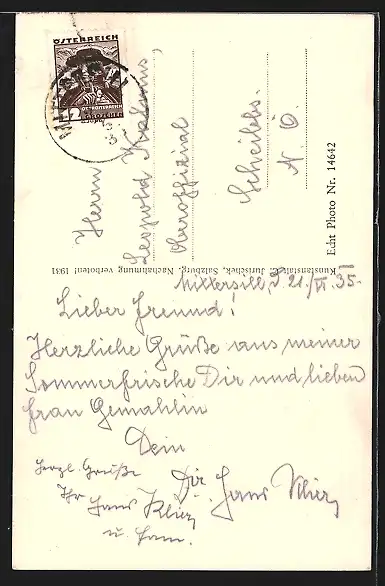 ÖSTERREICH
12
GROSCHEN
Herrn
Leopold
Oberoffizial
Scheibbs.
N. Ö.
Echt Photo Nr. 14642
Kunstanstalt C. Jurischek, Salzburg. Nachahmung verboten! 1931
Mittersill, 21./VI. 35.
Lieber Freund!
Herzliche Grüße aus meiner
Sommerfrische Dir und lieben
Frau Gemahlin
Dein
Dir. Hans
herzl. Grüße
Ihr Hans
u. Fam.